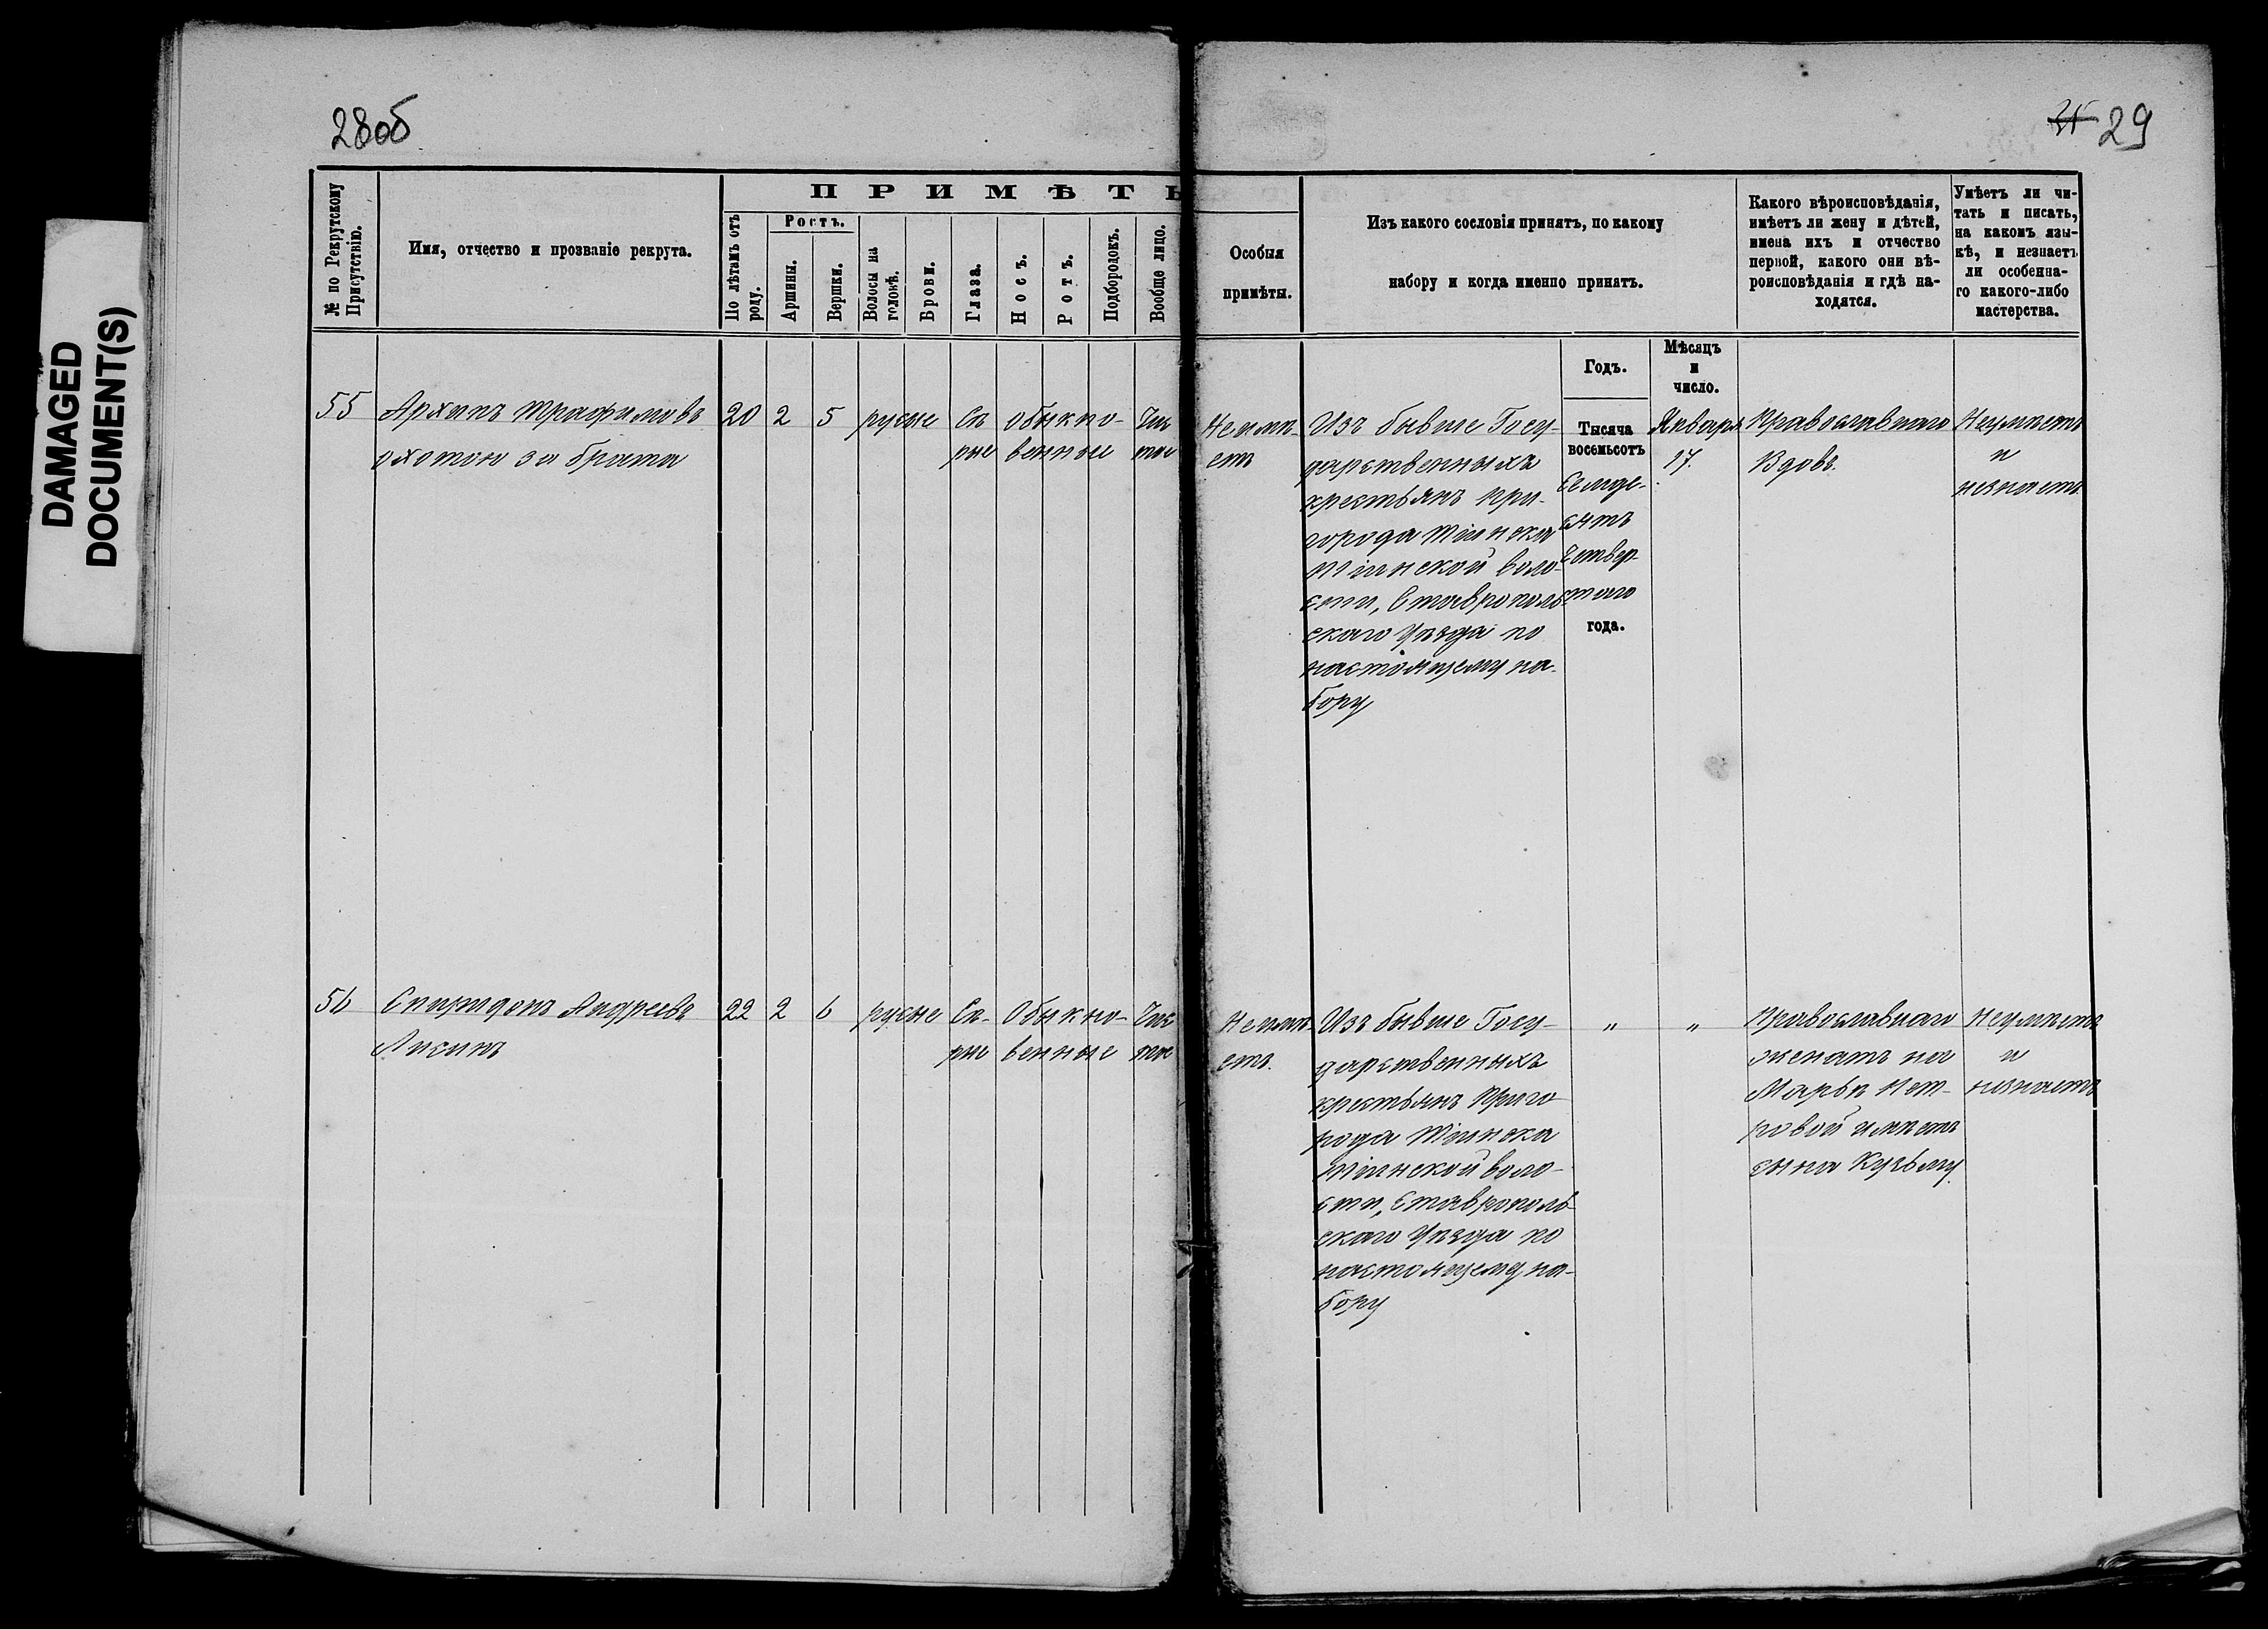 DAMAGED
DOCUMENT(S)
28об
29
№ по Рекрутскому
Присутствію.
Имя, отчество и прозваніе рекрута.
ПРИМѢТЫ
По лѣтамъ отъ
роду.
Ростъ.
Аршины.
Вершки.
Волосы на
головѣ.
Брови.
Глаза.
Носъ.
Ротъ.
Подбородокъ.
Вообще лицо.
Особыя
примѣты.
Изъ какого сословія принятъ, по какому
набору и когда именно принятъ.
Какого вѣроисповѣданія,
имѣетъ ли жену и дѣтей,
имена ихъ и отчество
первой, какого они вѣ-
роисповѣданія и гдѣ на-
ходятся.
Умѣетъ ли чи-
тать и писать,
на какомъ язы-
кѣ, и незнаетъ
ли особенна-
го какого-либо
мастерства.
Годъ.
Мѣсяцъ
и
число.
55
Архипъ Трафимовъ
охотою за брата
20
2
5
русые
Сѣ
рые
обыкно-
венные
Чис
тое
Неимѣ-
етъ
Изъ бывше Госу-
дарственныхъ
крестьянъ При-
города Тіинска
Тіинской воло-
сти, Ставрополь-
скаго Уѣзда по
настоящему на-
бору
Тысяча
восемьсотъ
Семьде-
сятъ
Четвер-
таго
года.
Января
17.
Православнаго
Вдовъ.
Неумѣетъ
и
незнаетъ
56
Спиридонъ Андреевъ
Лисинъ
22
2
6
русые
Сѣ-
рые
Обыкно-
венные
Чис
тое
Неимѣ
етъ.
Изъ бывше Госу-
дарственныхъ
крестьянъ Приго
рода Тіинска
Тіинской воло-
сти, Ставрополь-
скаго Уѣзда по
настоящему на-
бору
"
"
Православнаго
женатъ на
Марьѣ Пет-
ровой имѣетъ
сына Кузьму.
Неумѣетъ
и
незнаетъ